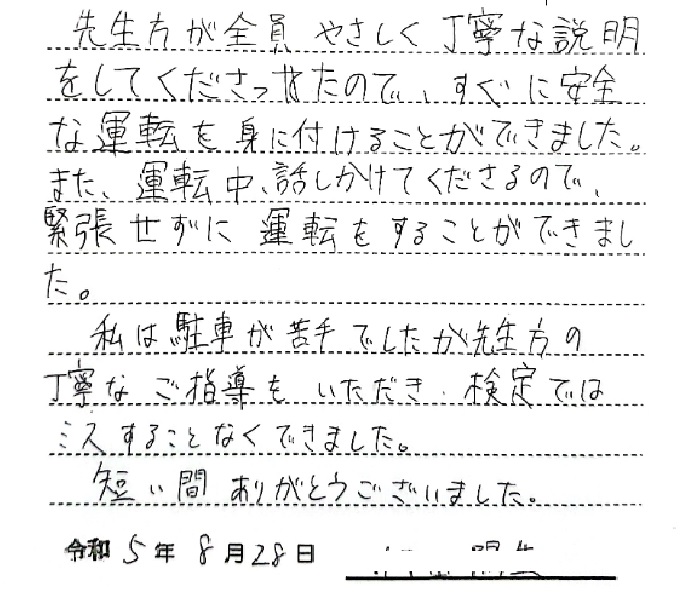 先生方が全員 やさしく 丁寧な説明
をしてくださったので、すぐに安全
な運転を身に付けることができました。
また、運転中、話しかけてくださるので、
緊張せずに 運転をすることができまし
た。
私は駐車が苦手でしたが先生方の
丁寧なご指導を いただき、検定では
ミスすることなくできました。
短い間 ありがとうございました。
令和5年8月28日